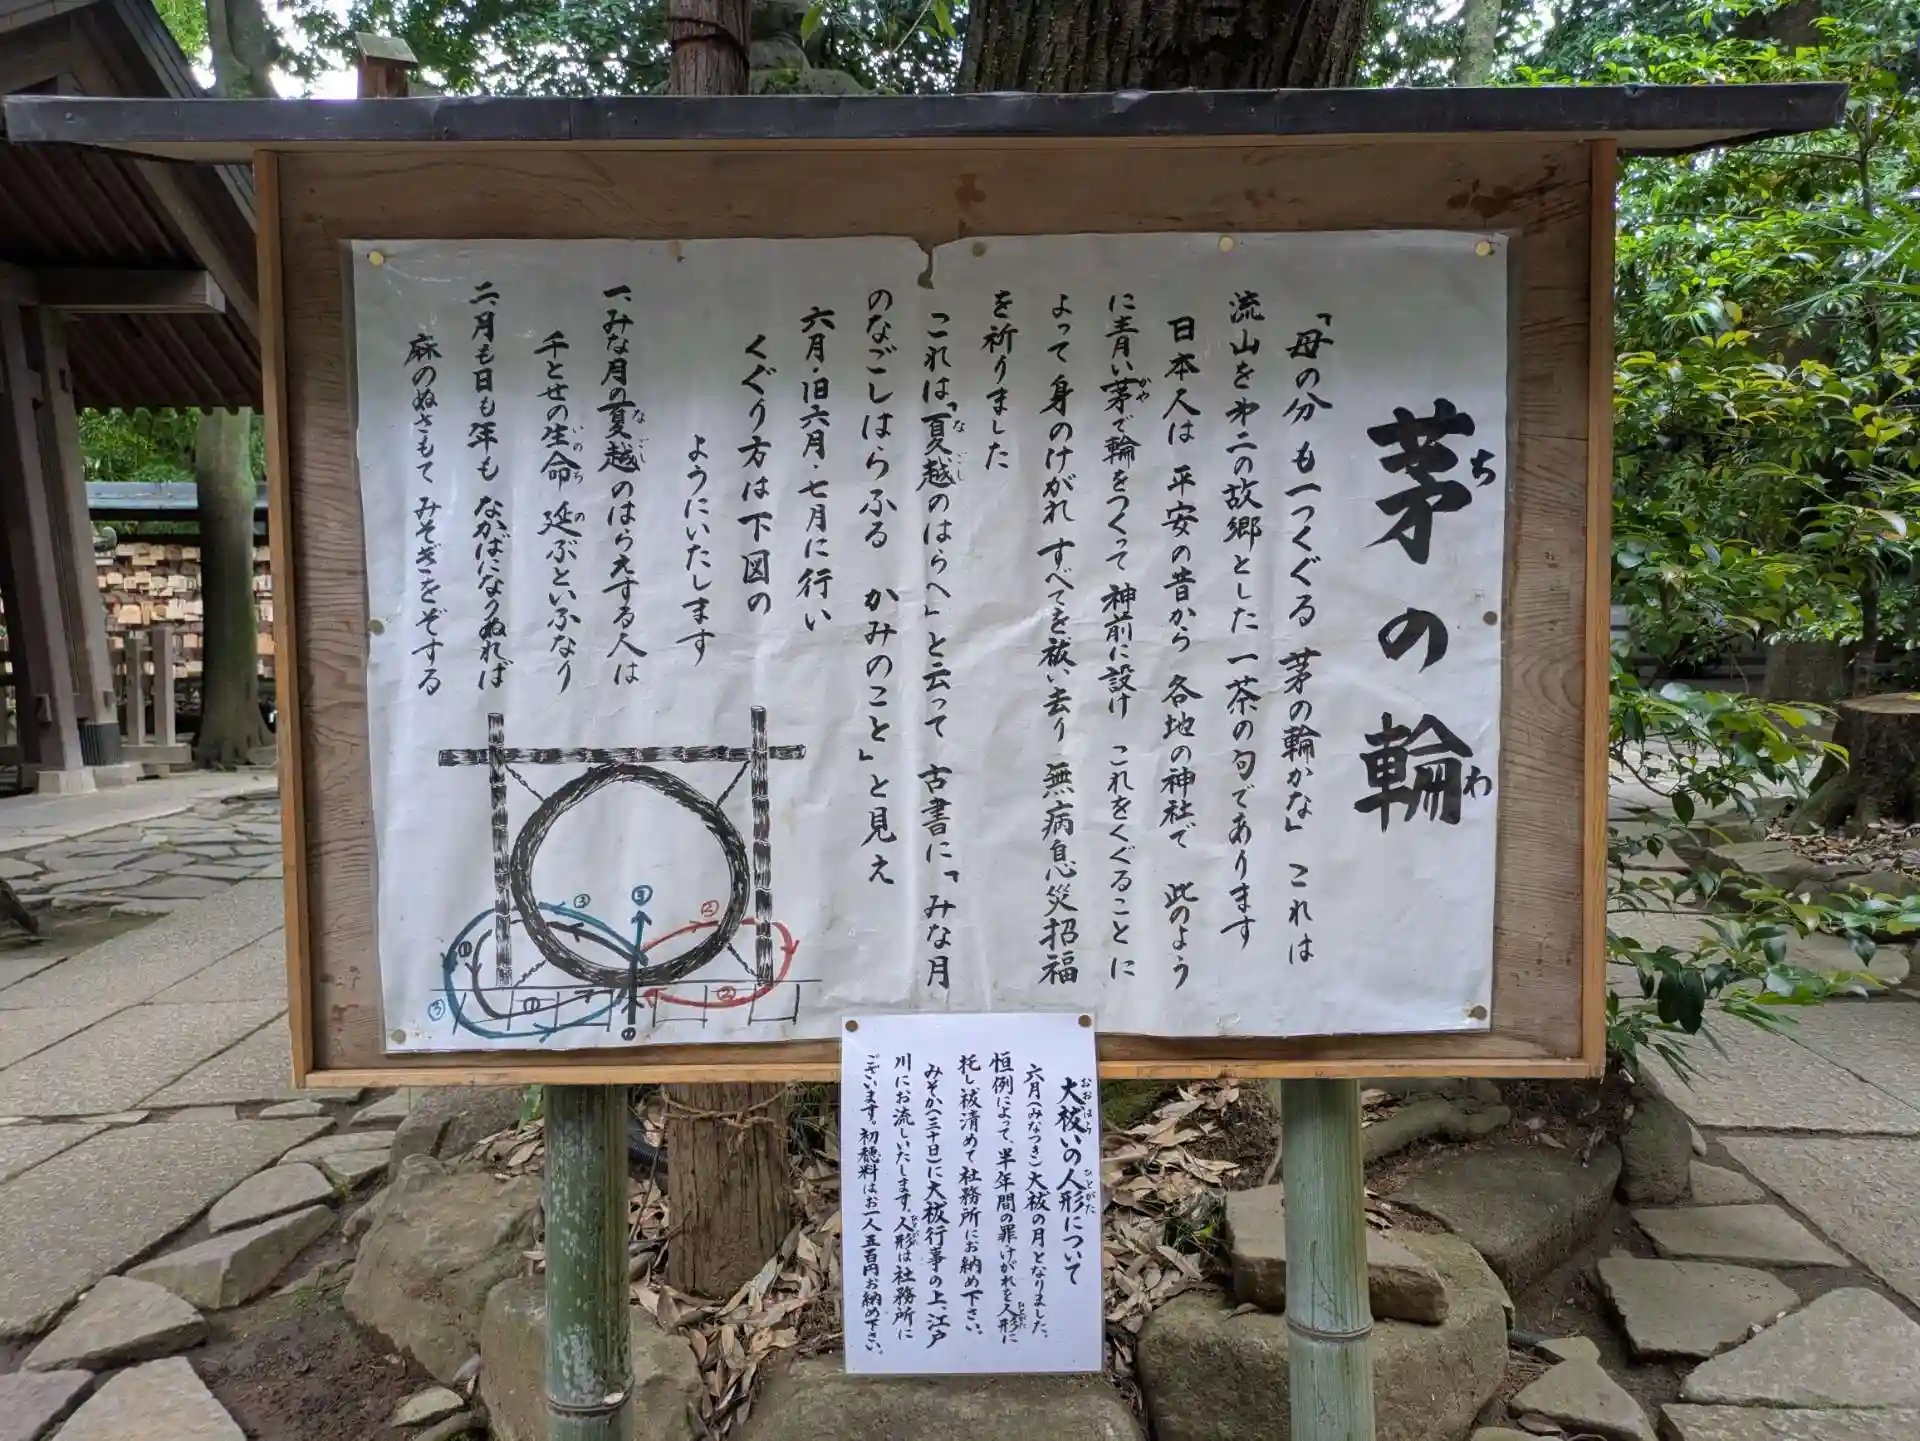 茅の輪
ち
わ
「母の分 も一つくぐる 茅の輪かな」 これは
流山を第二の故郷とした 一茶の句であります
日本人は 平安の昔から 各地の神社で 此のよう
に青い茅で輪をつくって 神前に設け これをくぐること に
かや
よって 身のけがれ すべてを祓い去り 無病息災招福
を祈りました
これは「夏越のはらへ」と云って 古書に「みな月
なごし
のなごしはらふる かみのこと」と見え
六月・旧六月・七月に行い
くぐり方は下図の
ようにいたします
一、みな月の夏越のはらえする人は
なごし
千とせの生命 延ぶといふなり
いのち の
二、月も日も年も なかばになりぬれば
麻のぬさもて みそぎをぞする
① ① ①
② ② 
③ ③
大祓いの人形について
おおはら ひとがた
六月(みなつき)大祓の月となりました。
恒例によって、半年間の罪けがれを人形に
ひとがた
托し祓清めて社務所にお納め下さい。
みそか(三十日)に大祓行事の上、江戸
川にお流しいたします。人形は社務所に
ひとがた
ございます。初穂料はお一人五百円お納め下さい。